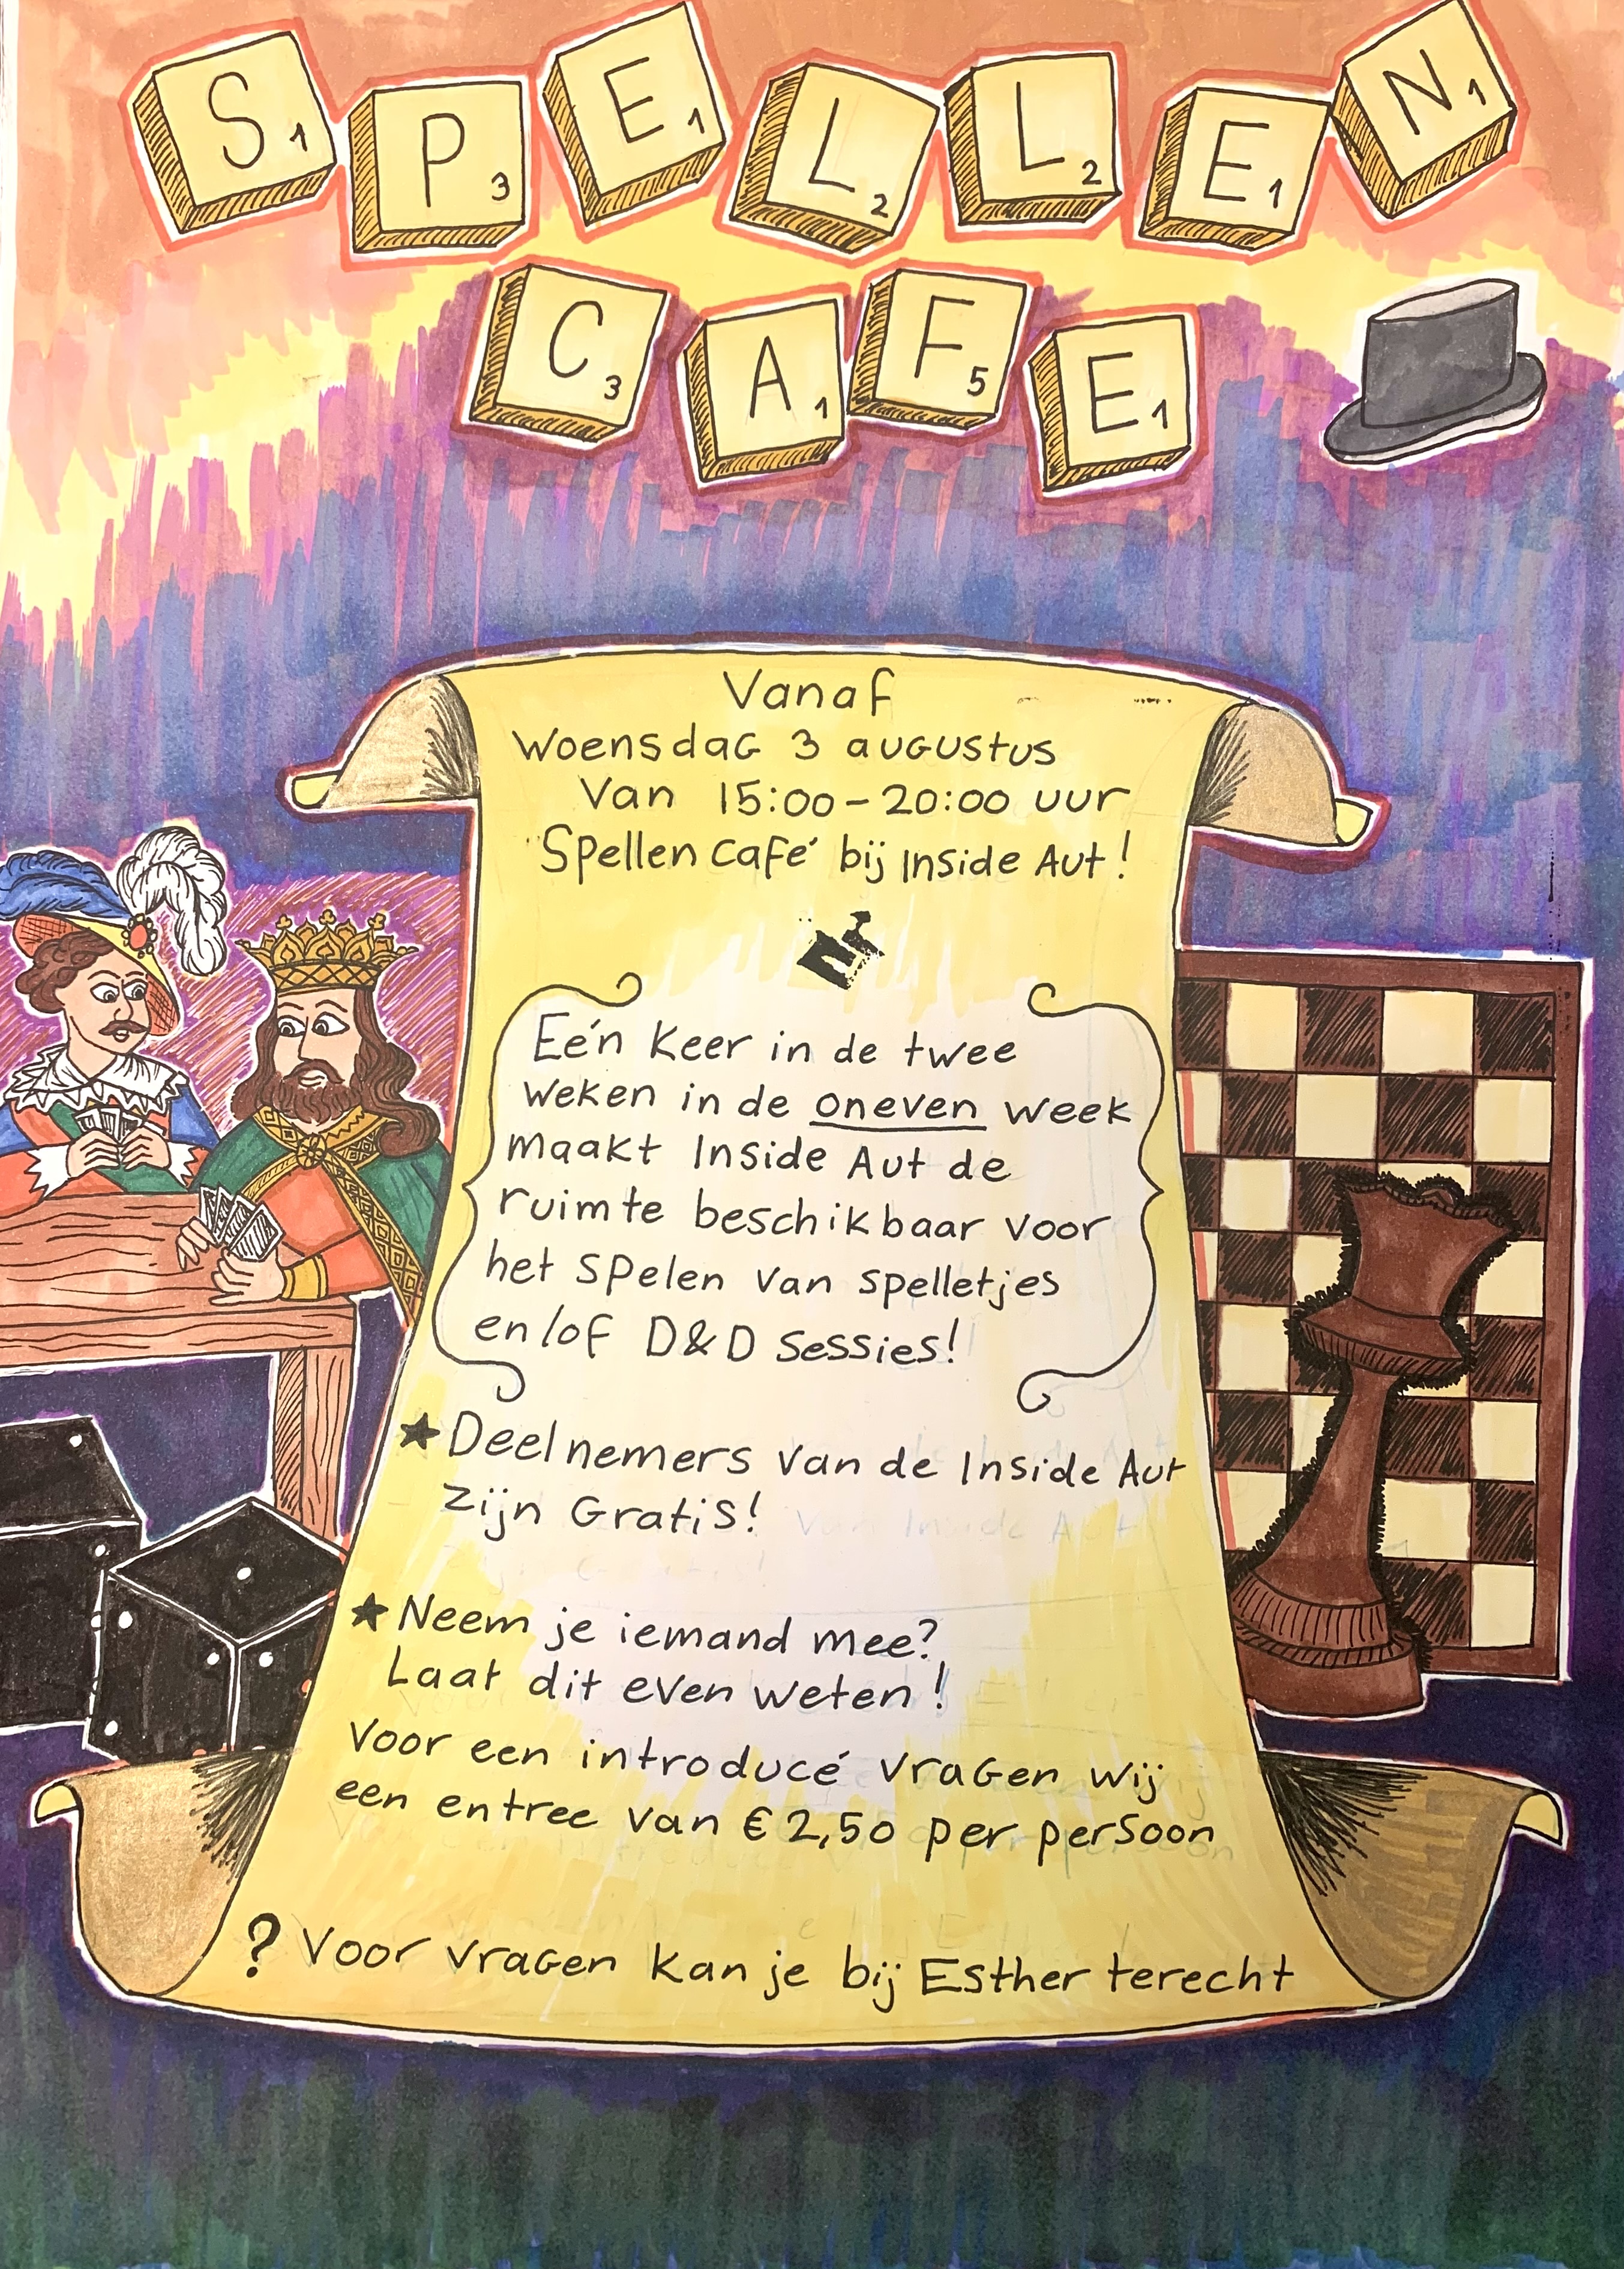 SPELLEN
CAFE
Vanaf
Woensdag 3 augustus
Van 15:00-20:00 uur
'Spellen café' bij Inside Aut!
Eén keer in de twee
weken in de oneven week
maakt Inside Aut de
ruimte beschikbaar voor
het spelen van spelletjes
en/of D&D sessies!
★ Deelnemers van de Inside Aut
zijn Gratis!
★ Neem je iemand mee?
Laat dit even weten!
Voor een introducé vragen wij
een entree van €2,50 per persoon
? Voor vragen kan je bij Esther terecht